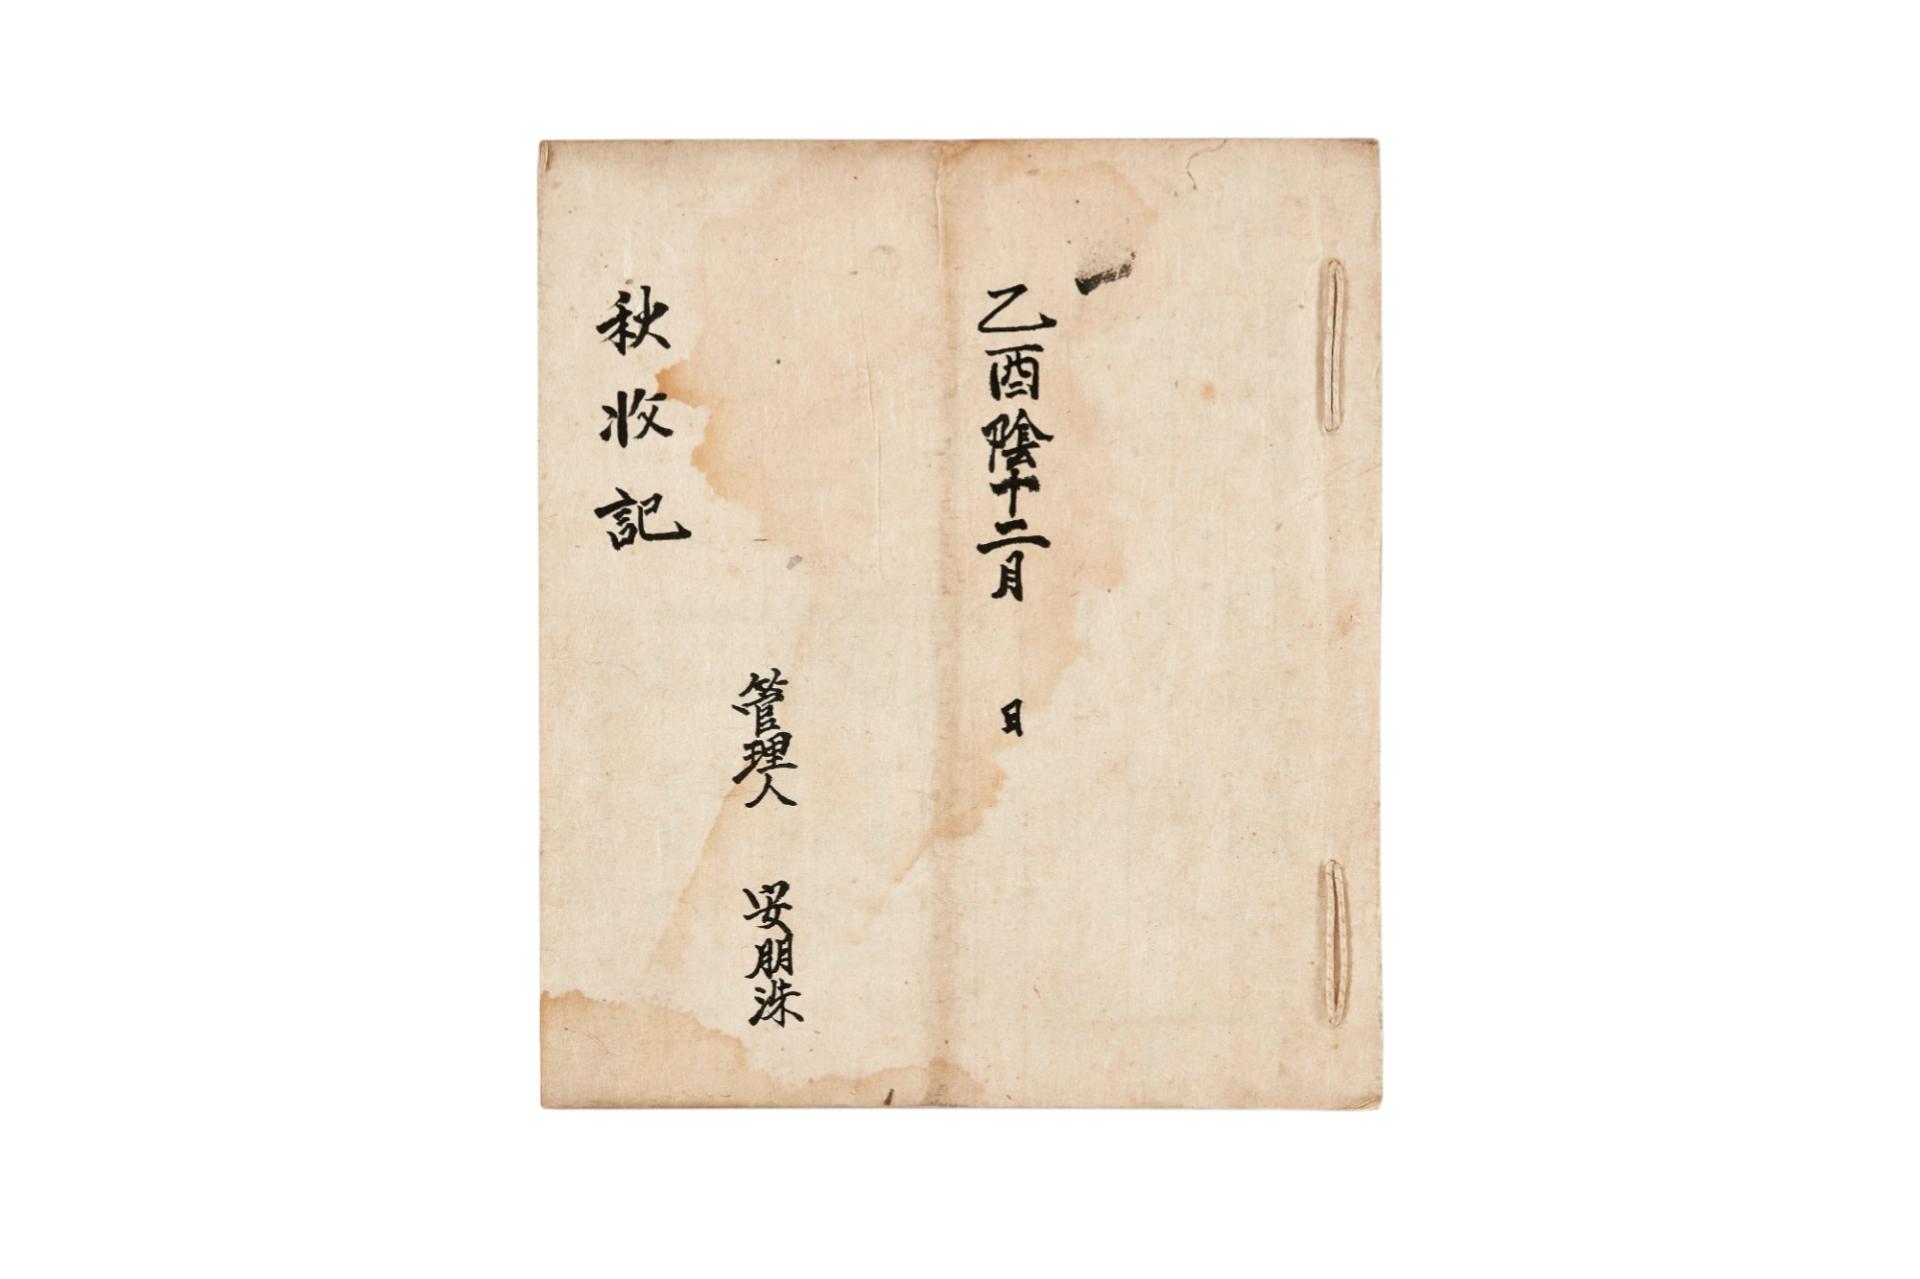 乙酉陰十二月 日
管理人 安朋洙
秋收記